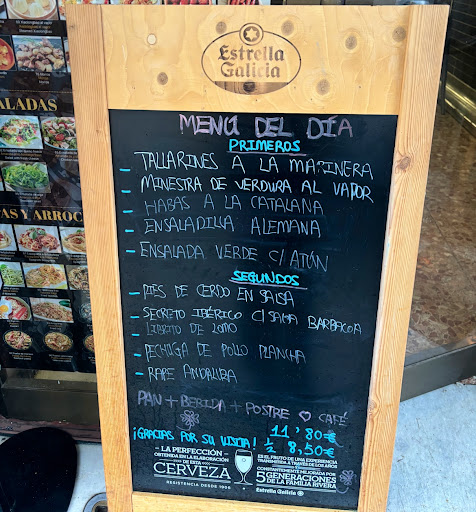 Estrella
Galicia
MENÚ DEL DÍA
PRIMEROS
- TALLARINES A LA MARINERA
- MINESTRA DE VERDURA AL VAPOR
- HABAS A LA CATALANA
- ENSALADILLA ALEMANA
- ENSALADA VERDE C/ ATÚN
SEGUNDOS
- PIES DE CERDO EN SALSA
- SECRETO IBÉRICO C/ SALSA BARBACOA
LIBRITO DE LOMO
- PECHUGA DE POLLO PLANCHA
- RAPE ANDALUZA
PAN + BEBIDA + POSTRE ♡ CAFÉ
11'80€
¡GRACIAS POR SU VISITA! ½ 8,50€
LA PERFECCIÓN
OBTENIDA EN LA ELABORACIÓN
DE ESTA
CERVEZA
RESISTENCIA DESDE 1906
ES EL FRUTO DE UNA EXPERIENCIA
TRANSMITIDA A TRAVÉS DE LOS AÑOS
CONSTANTEMENTE MEJORADA POR
5 GENERACIONES
DE LA FAMILIA RIVERA
Estrella Galicia
ALADAS
AS Y ARROC